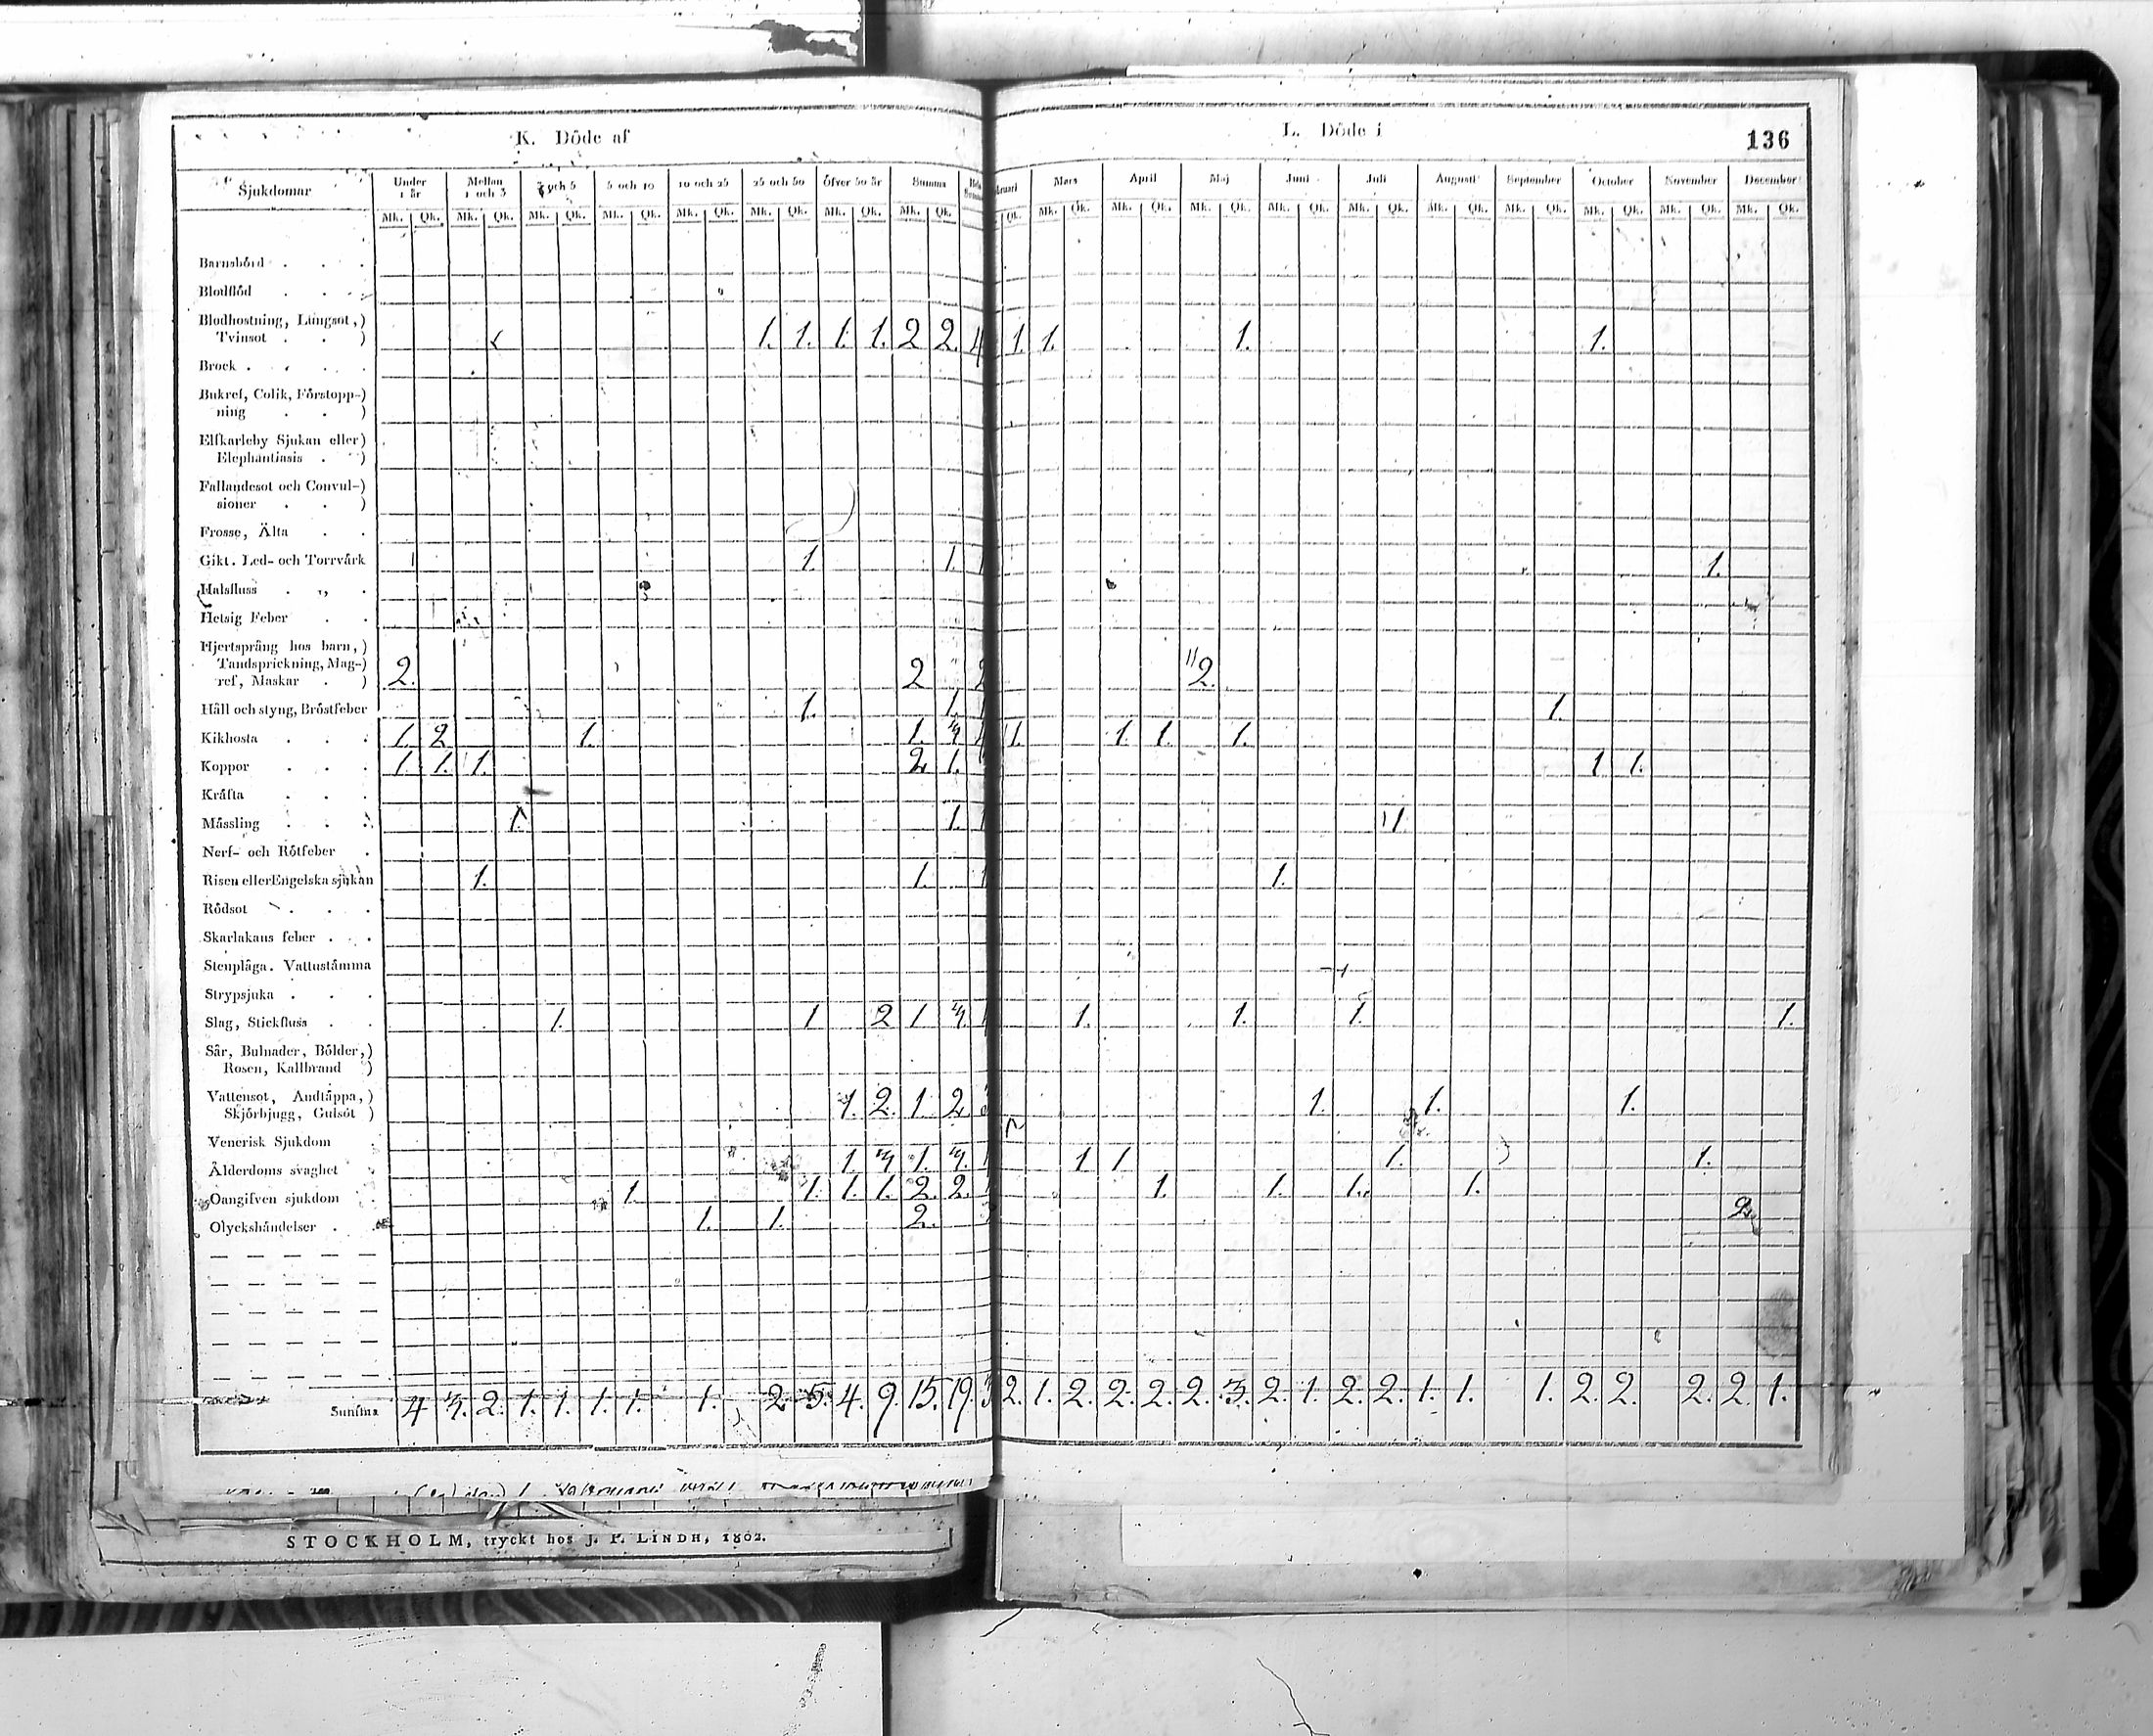 K. Döde af
L. Döde i
136
Sjukdomar Under 1 år Mellan 1 och 3 3 och 5 5 och 10 10 och 25 25 och 50 öfver 50 år Summa Mars April Maj Juni Juli Augusti September October November December
Mk. Qk. Mk. Qk. Mk. Qk. Mk. Qk. Mk. Qk. Mk. Qk. Mk. Qk. Mk. Qk. Qk. Mk. Qk. Mk. Qk. Mk. Qk. Mk. Qk. Mk. Qk. Mk. Qk. Mk. Qk. Mk. Qk. Mk. Qk. Mk. Qk.
Barnsbörd . . .
Blodflöd . . .
Blodhostning, Lungsot,)
Tvinsot . . ) 1. 1. 1. 1. 2 2. 4 1. 1. 1. 1.
Brock . . . .
Bukref, Colik, Förstopp-)
ning . . )
Elfkarleby Sjukan eller)
Elephantiasis . )
Fallandesot och Convul-)
sioner . . )
Frosse, Älta . .
Gikt. Led- och Torrvärk 1. 1. 1.
Halsfluss . . .
Hetsig Feber . .
Hjertsprång hos barn,)
Tandsprickning, Mag-)
ref, Maskar . ) 2. 2 2 2.
Håll och styng, Bröstfeber 1. 1. 1.
Kikhosta . . . 1. 2 1. 1. 3 4 1. 1. 1. 1.
Koppor . . . 1. 1. 1. 2 1. 1 1.
Kräfta . . .
Mässling . . . 1. 1. 1.
Nerf- och Rötfeber .
Risen eller Engelska sjukan 1. 1. 1.
Rödsot . . .
Skarlakans feber . . .
Stenplåga. Vattustämma
Strypsjuka . . .
Slag, Stickfluss . . 1. 1 2 1 3. 1. 1. 1. 1.
Sår, Bulnader, Bölder,)
Rosen, Kallbrand )
Vattensot, Andtäppa,)
Skjörbjugg, Gulsot ) 1. 2. 1 2. 3 1. 1. 1.
Venerisk Sjukdom .
Ålderdoms svaghet . 1. 3 1. 3. 1 1 1. 1.
Oangifven sjukdom . 1. 1. 1. 1. 2. 2. 1. 1. 1. 1.
Olyckshändelser . . 1. 1. 2. 2.
Summa 4 3. 2. 1. 1. 1. 1. 1. 2. 5. 4. 9. 15. 19. 2. 1. 2. 2. 2. 2. 3. 2. 1. 2. 2. 1. 1. 1. 2. 2. 2. 2. 1.
STOCKHOLM, tryckt hos J. P. LINDH, 1802.